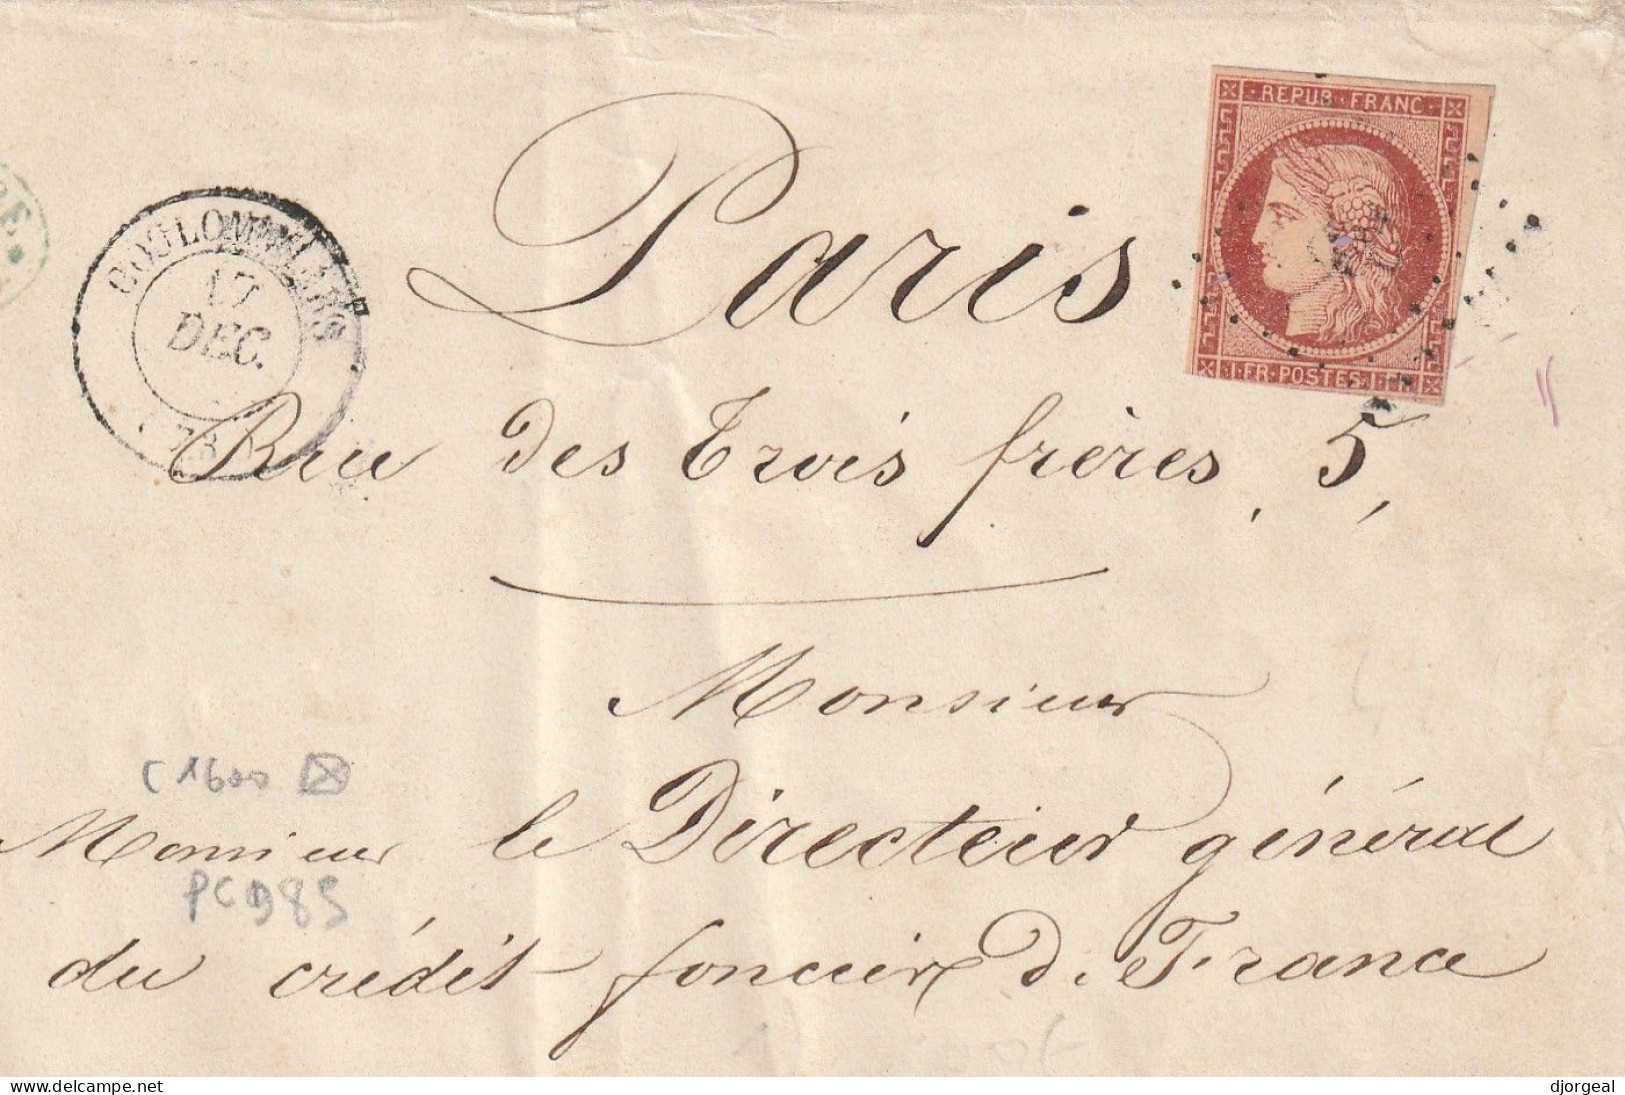 REPUB · FRANC ·
· 1 · FR · POSTES · 1 · FR
Paris
COULOMMIERS
17
DEC.
Rue des Trois frères, 5,
Monsieur
C 1600
Monsieur le Directeur général
PC 985
du crédit foncier de France
djorgeal